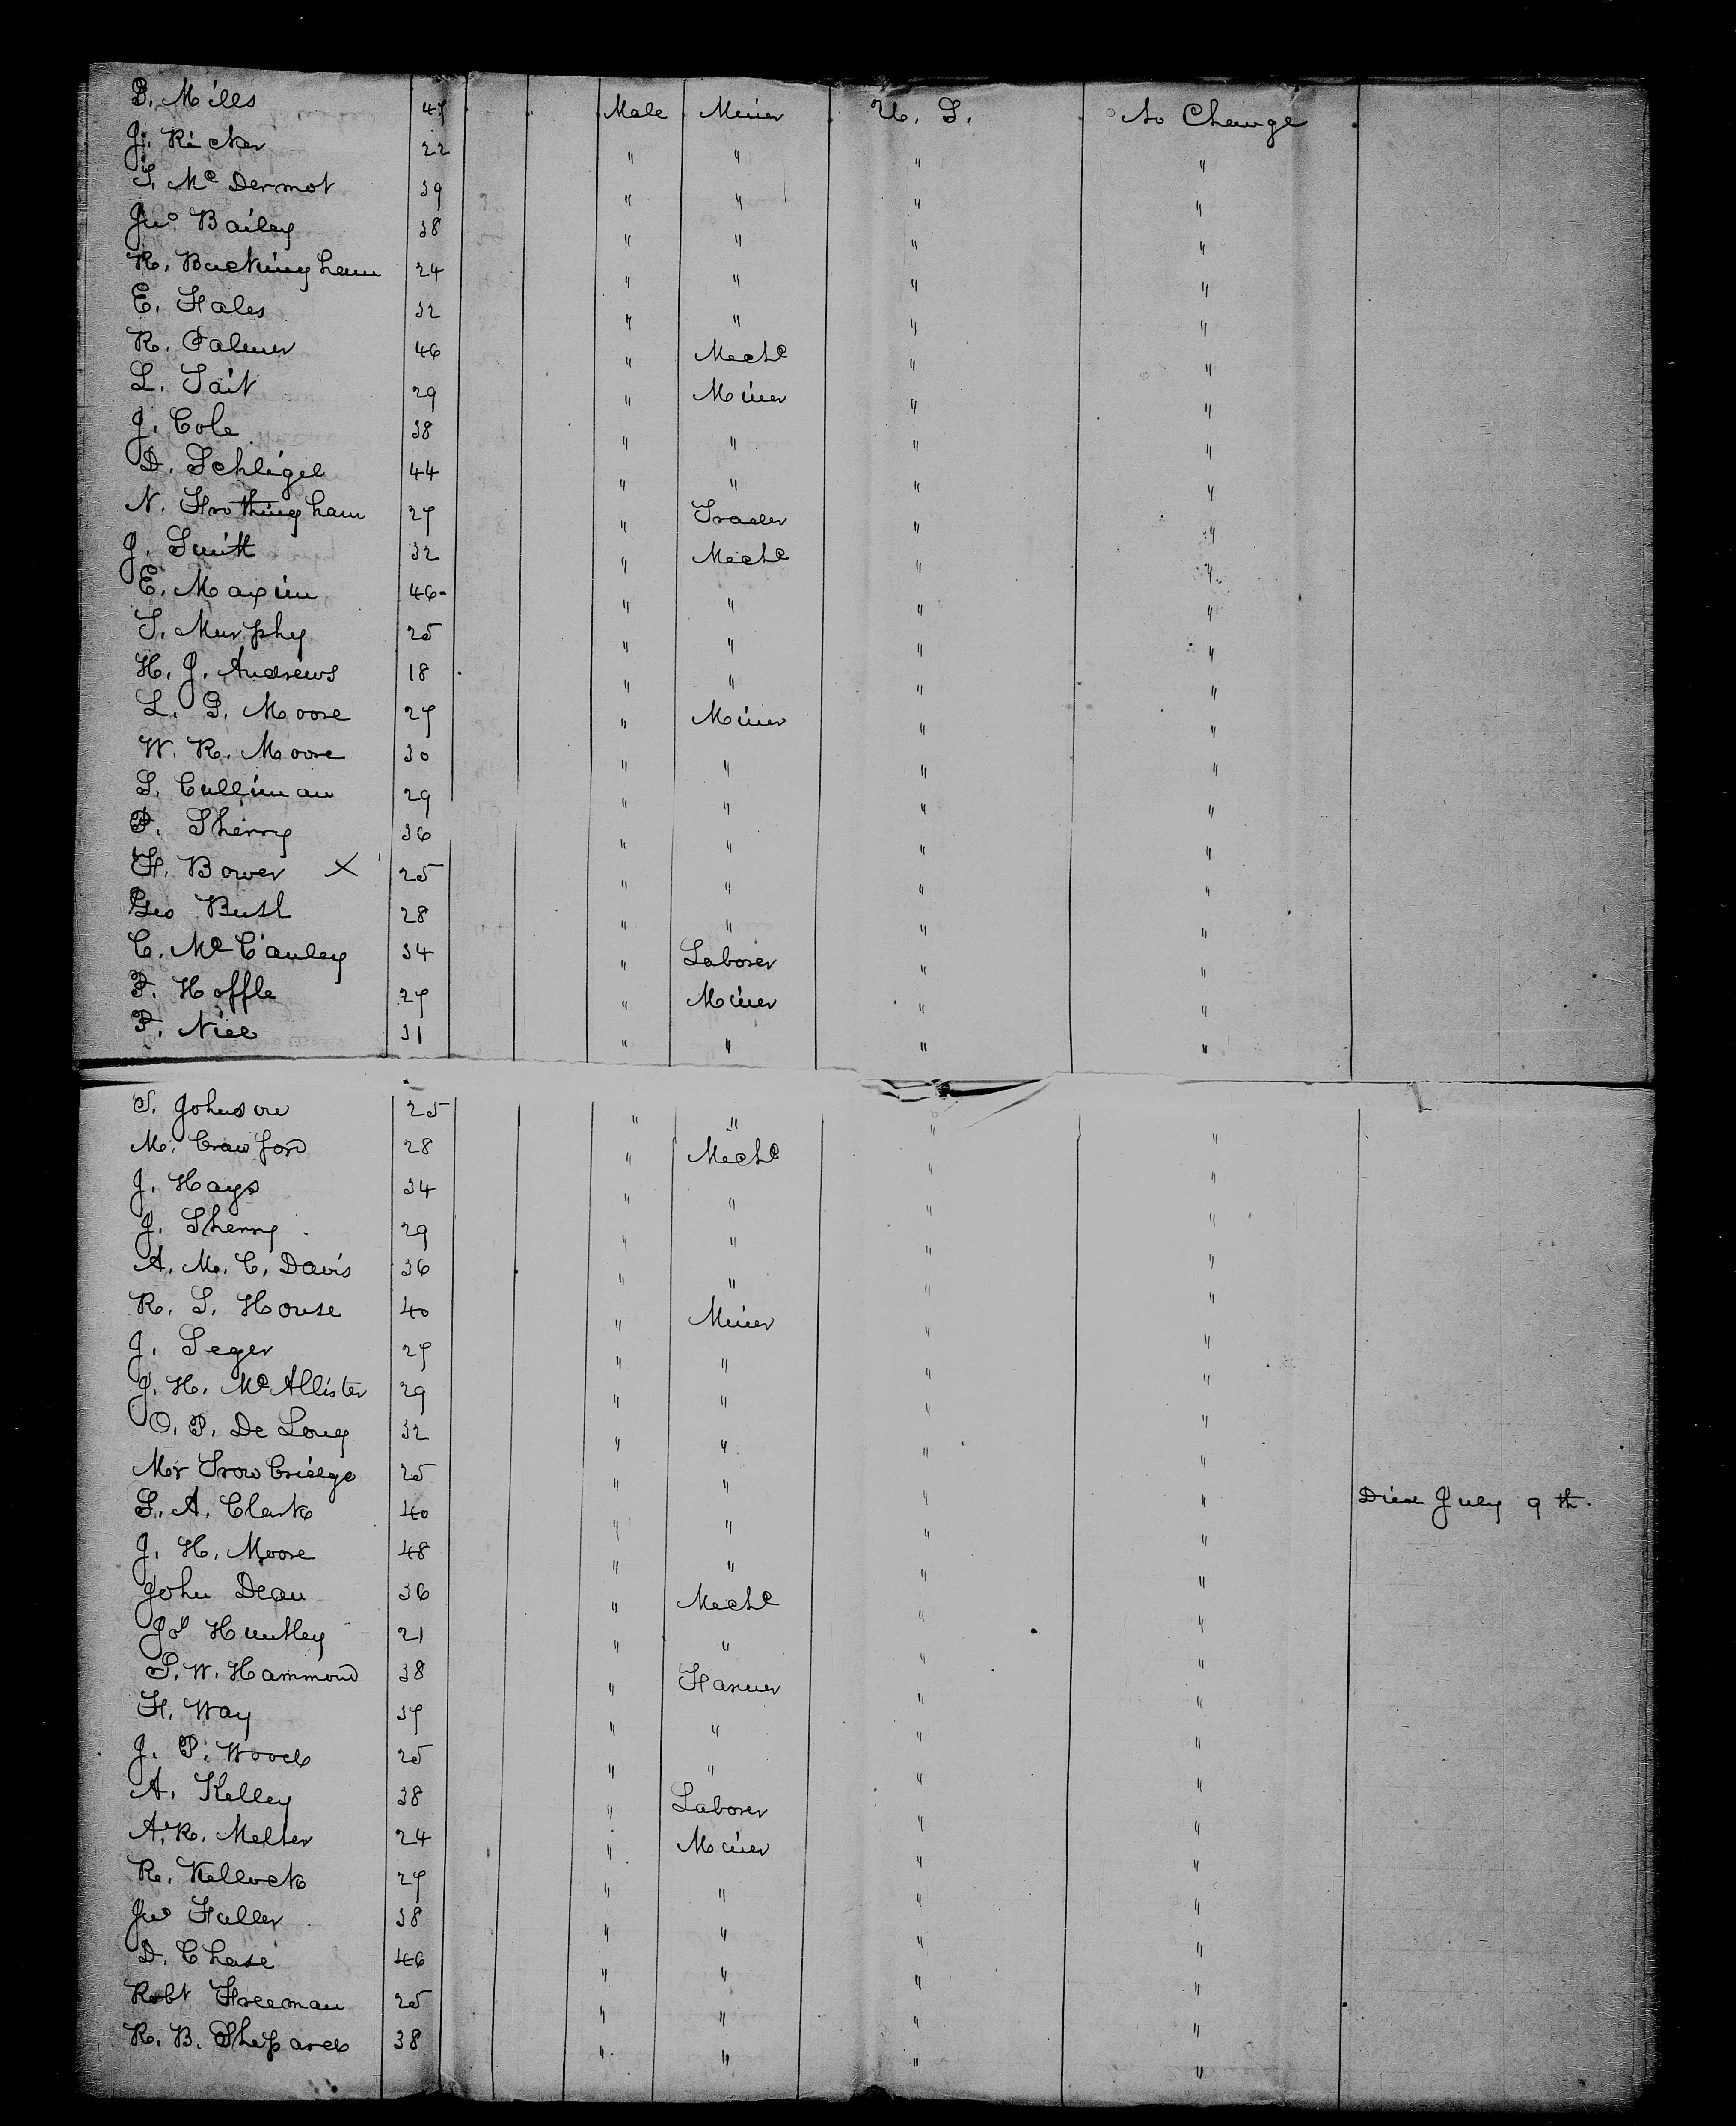 S. Mills 47 Male Miner U. S. No Change
J. Ricker 22 " " " "
T. Mc Dermot 39 " " " "
Jno. Bailey 38 " " " "
R. Buckingham 24 " " " "
E. Fales 32 " " " "
R. Palmer 46 " Mechc " "
L. Tait 29 " Miner " "
J. Cole 38 " " " "
D. Schligel 44 " " " "
N. Frothingham 27 " Trader " "
J. Smith 32 " Mechc " "
E. Maxim 46 " " " "
T. Murphy 25 " " " "
H. J. Andrews 18 " " " "
L. G. Moore 27 " Miner " "
W. R. Moore 30 " " " "
S. Cullinan 29 " " " "
P. Sherry 36 " " " "
F. Bower X 25 " " " "
Geo Bush 28 " " " "
C. Mc Cauley 34 " Laborer " "
F. Hoffle 27 " Miner " "
P. Niel 31 " " " "
S. Johnson 25 " " " "
M. Crawford 28 " Mechc " "
J. Hays 34 " " " "
J. Sherry 29 " " " "
A. M. C. Davis 36 " " " "
R. S. House 40 " Miner " "
J. Seger 27 " " " "
J. H. Mc Allister 29 " " " "
O. P. De Long 32 " " " "
Mr Trowbridge 25 " " " " Died July 9 th.
S. A. Clark 40 " " " "
J. H. Moore 48 " " " "
John Dean 36 " Mechc " "
Jos Huntley 21 " " " "
S. W. Hammond 38 " Farmer " "
F. Way 37 " " " "
J. P. Woods 25 " " " "
A. Kelley 38 " Laborer " "
A. R. Melter 24 " Miner " "
R. Kellock 27 " " " "
Jno Fuller 38 " " " "
D. Chase 46 " " " "
Robt Freeman 25 " " " "
R. B. Shepard 38 " " " "